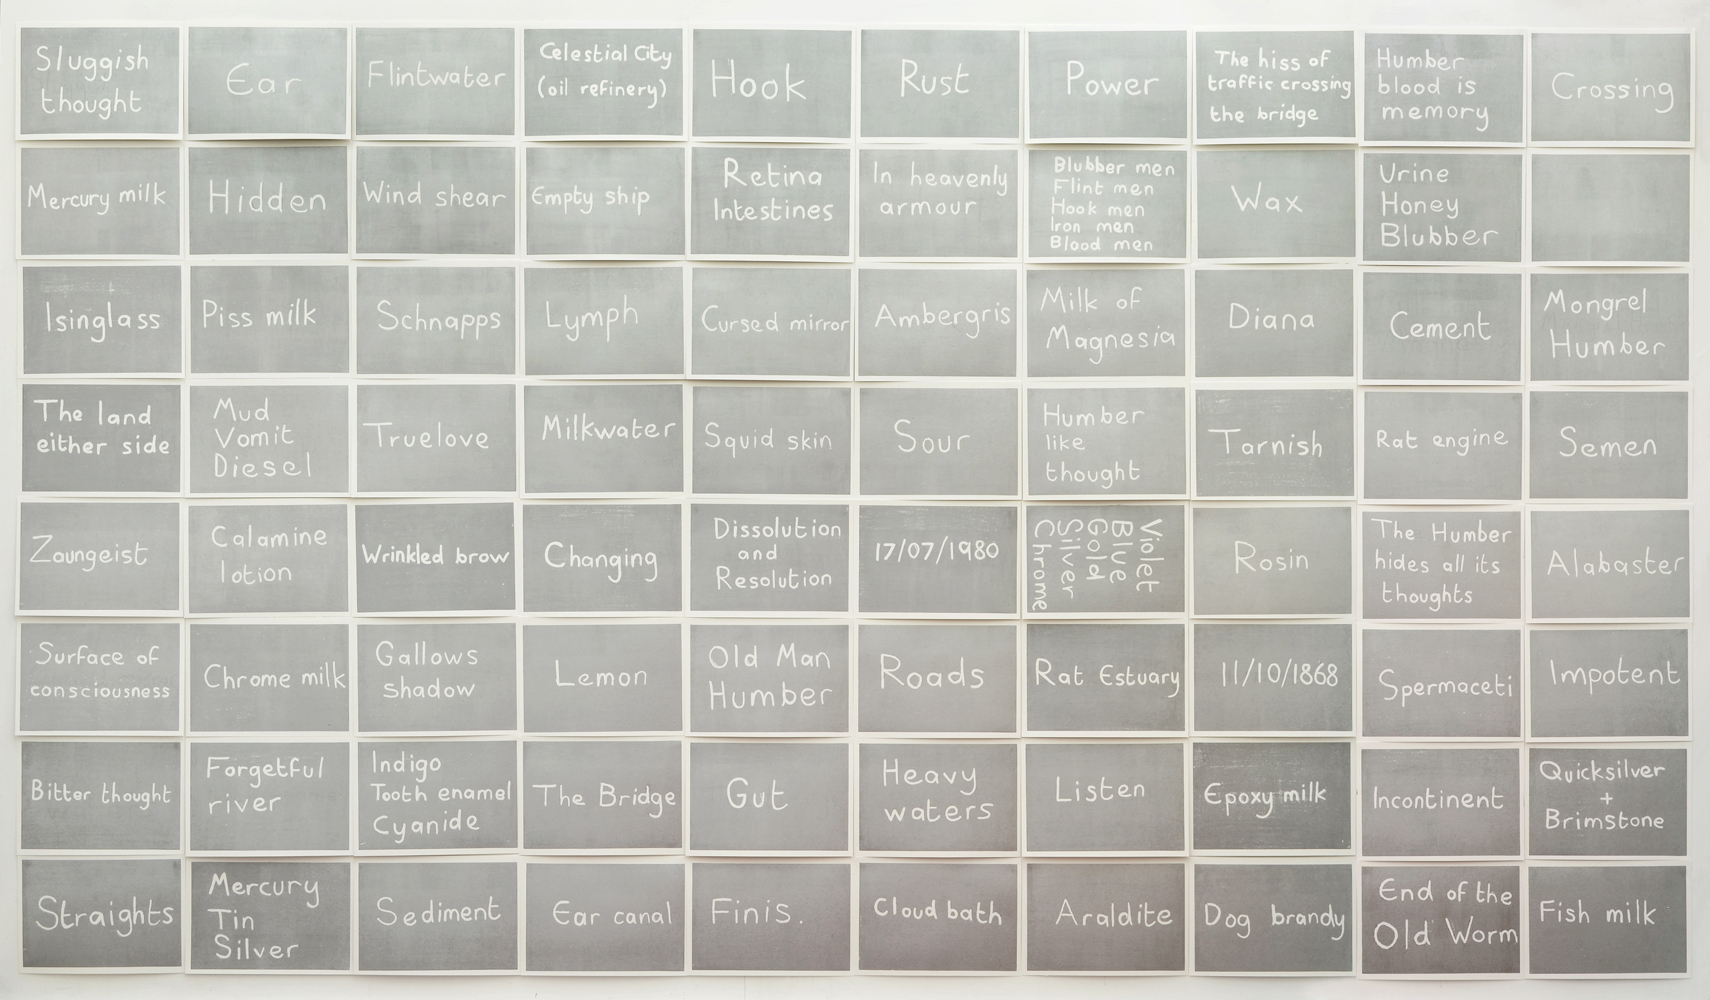 Sluggish
thought
Ear
Flintwater
Celestial City
(oil refinery)
Hook
Rust
Power
The hiss of
traffic crossing
the bridge
Humber
blood is
memory
Crossing
Mercury milk
Hidden
Wind shear
Empty ship
Retina
Intestines
In heavenly
armour
Blubber men
Flint men
Hook men
Iron men
Blood men
Wax
Urine
Honey
Blubber
Isinglass
Piss milk
Schnapps
Lymph
Cursed mirror
Ambergris
Milk of
Magnesia
Diana
Cement
Mongrel
Humber
The land
either side
Mud
Vomit
Diesel
Truelove
Milkwater
Squid skin
Sour
Humber
like
thought
Tarnish
Rat engine
Semen
Zaungeist
Calamine
lotion
Wrinkled brow
Changing
Dissolution
and
Resolution
17/07/1980
Violet
Blue
Gold
Silver
Chrome
Rosin
The Humber
hides all its
thoughts
Alabaster
Surface of
consciousness
Chrome milk
Gallows
shadow
Lemon
Old Man
Humber
Roads
Rat Estuary
11/10/1868
Spermaceti
Impotent
Bitter thought
Forgetful
river
Indigo
Tooth enamel
Cyanide
The Bridge
Gut
Heavy
waters
Listen
Epoxy milk
Incontinent
Quicksilver
+
Brimstone
Straights
Mercury
Tin
Silver
Sediment
Ear canal
Finis.
Cloud bath
Araldite
Dog brandy
End of the
Old Worm
Fish milk